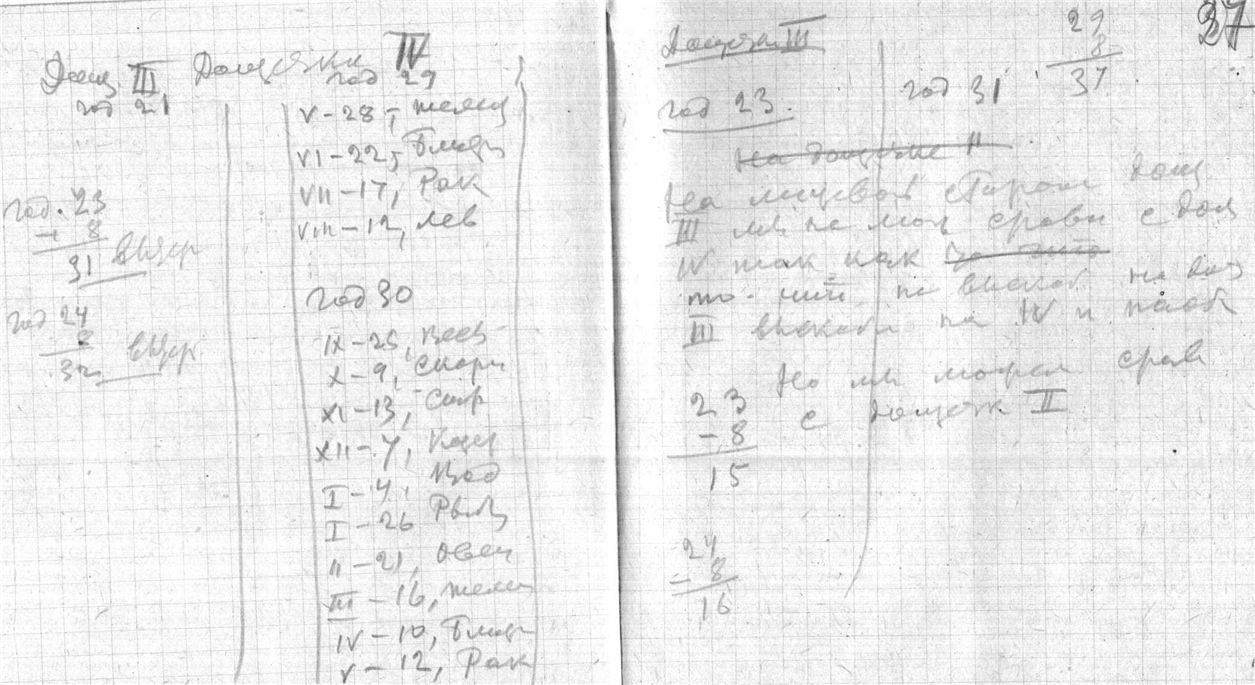 Дощ III, Дощечки IV
год 21
год 29
V-28, телец
VI-22, Близн
VII-17, Рак
VIII-12, лев
год. 23
8
31
год 24
8
32
год 30
IX-25, Весы
X-9, Скорп
XI-13,
XII-7,
I-4, Вод
I-26 Рыб
II-21, Овен
III-16, телец
IV-10, Близн
V-12, Рак
37
Дощечк III
29
8
37
год 23.
год 31
На дощечке II
На лицевой стороне дощ
III мы не мож сравн с дощ
IV так как
III на IV и
Но мы можем срав
с дощечк II
23
-8
15
24
-8
16